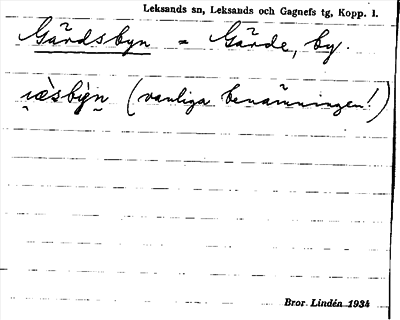 Leksands sn, Leksands och Gagnefs tg, Kopp. l.
Gårdsbyn = Gärde, by.
(vanliga benämningen!)
Bror Lindén 1934